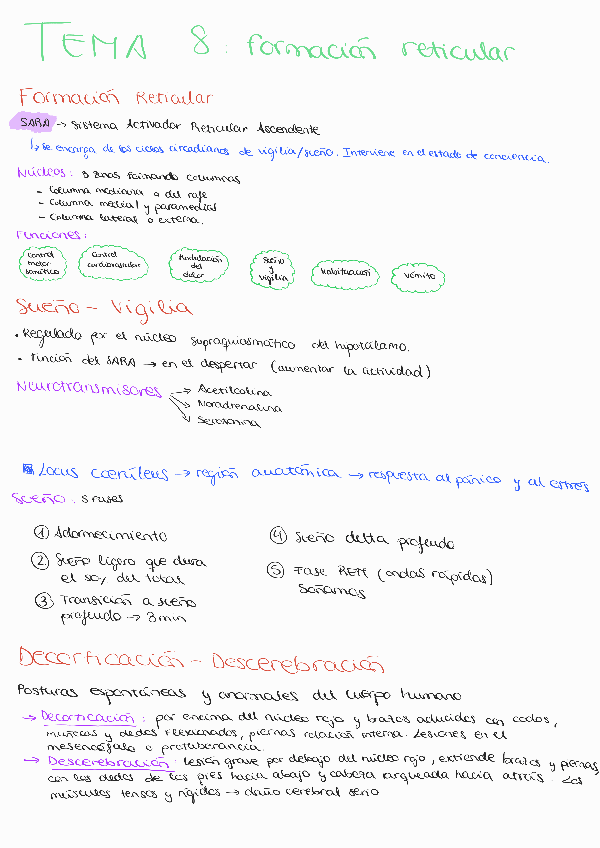 TEMA 8: formación reticular
Formación Reticular
SARA → Sistema Activador Reticular Ascendente
↳ se encarga de los ciclos circadianos de vigilia/sueño. Interviene en el estado de conciencia.
Núcleos: 3 zonas formando columnas
- Columna mediana o del rafe
- Columna medial y paramedias
- Columna lateral o externa.
Funciones:
Control motor somático
Control cardiovascular
Modulación del dolor
Sueño y vigilia
habituación
vómito
Sueño - Vigilia
• Regulado por el núcleo supraquiasmático del hipotálamo.
• Función del SARA → en el despertar (aumentar la actividad)
Neurotransmisores → Acetilcolina
→ Noradrenalina
→ Serotonina
Locus coeruleus → región anatómica → respuesta al pánico y al estrés
Sueño: 5 fases
① Adormecimiento
② Sueño ligero que dura
el 50% del total
③ Transición a sueño
profundo → 3 min
④ Sueño delta profundo
⑤ Fase REM (ondas rápidas)
Soñamos
Decorticación - Descerebración
Posturas espontáneas y anormales del cuerpo humano
→ Decorticación: por encima del núcleo rojo y brazos aducidos con codos,
muñecas y dedos flexionados, piernas rotación interna. Lesiones en el
mesencéfalo o protuberancia.
→ Descerebración: lesión grave por debajo del núcleo rojo, extiende brazos y piernas,
con los dedos de los pies hacia abajo y cabeza arqueada hacia atrás. Los
músculos tensos y rígidos → daño cerebral serio